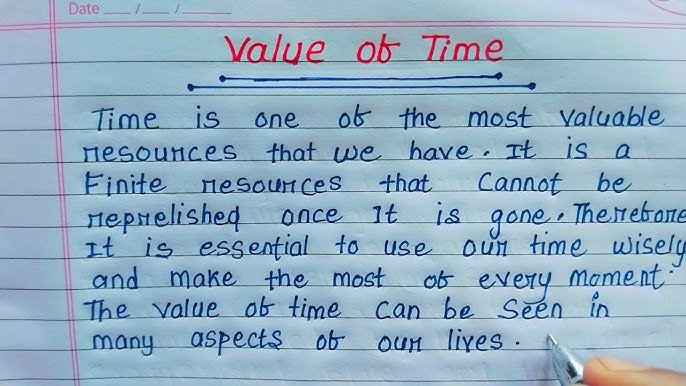 Date __ / __ / __
Value of Time
Time is one of the most valuable
resources that we have. It is a
Finite resources that Cannot be
reprelished once It is gone. Therefore
It is essential to use our time wisely
and make the most of every moment.
The value of time can be Seen in
many aspects of our lives.